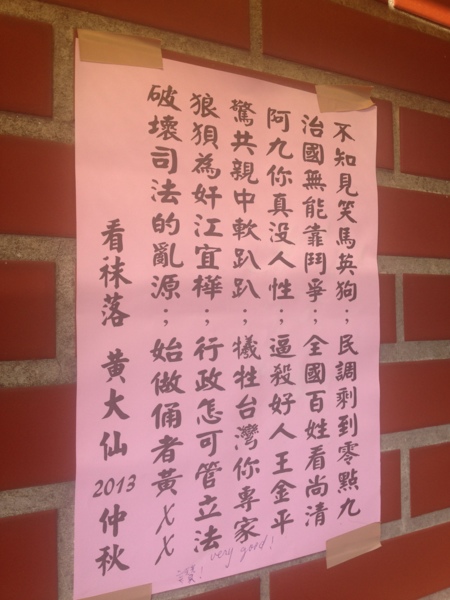 不知見笑馬英狗；民調剩到零點九
治國無能靠鬥爭；全國百姓看尚清
阿九你真没人性；逼殺好人王金平
驚共親中軟趴趴；犧牲台灣你專家
狼狽為奸江宜樺；行政怎可管立法
破壞司法的亂源；始做俑者黃XX
看袜落 黃大仙 2013仲秋
讚！very good!